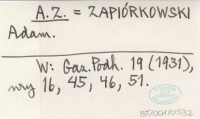 A.Z. = ZAPIÓRKOWSKI
Adam.
W: Gaz. Podh. 19 (1931),
nry 16, 45, 46, 51.